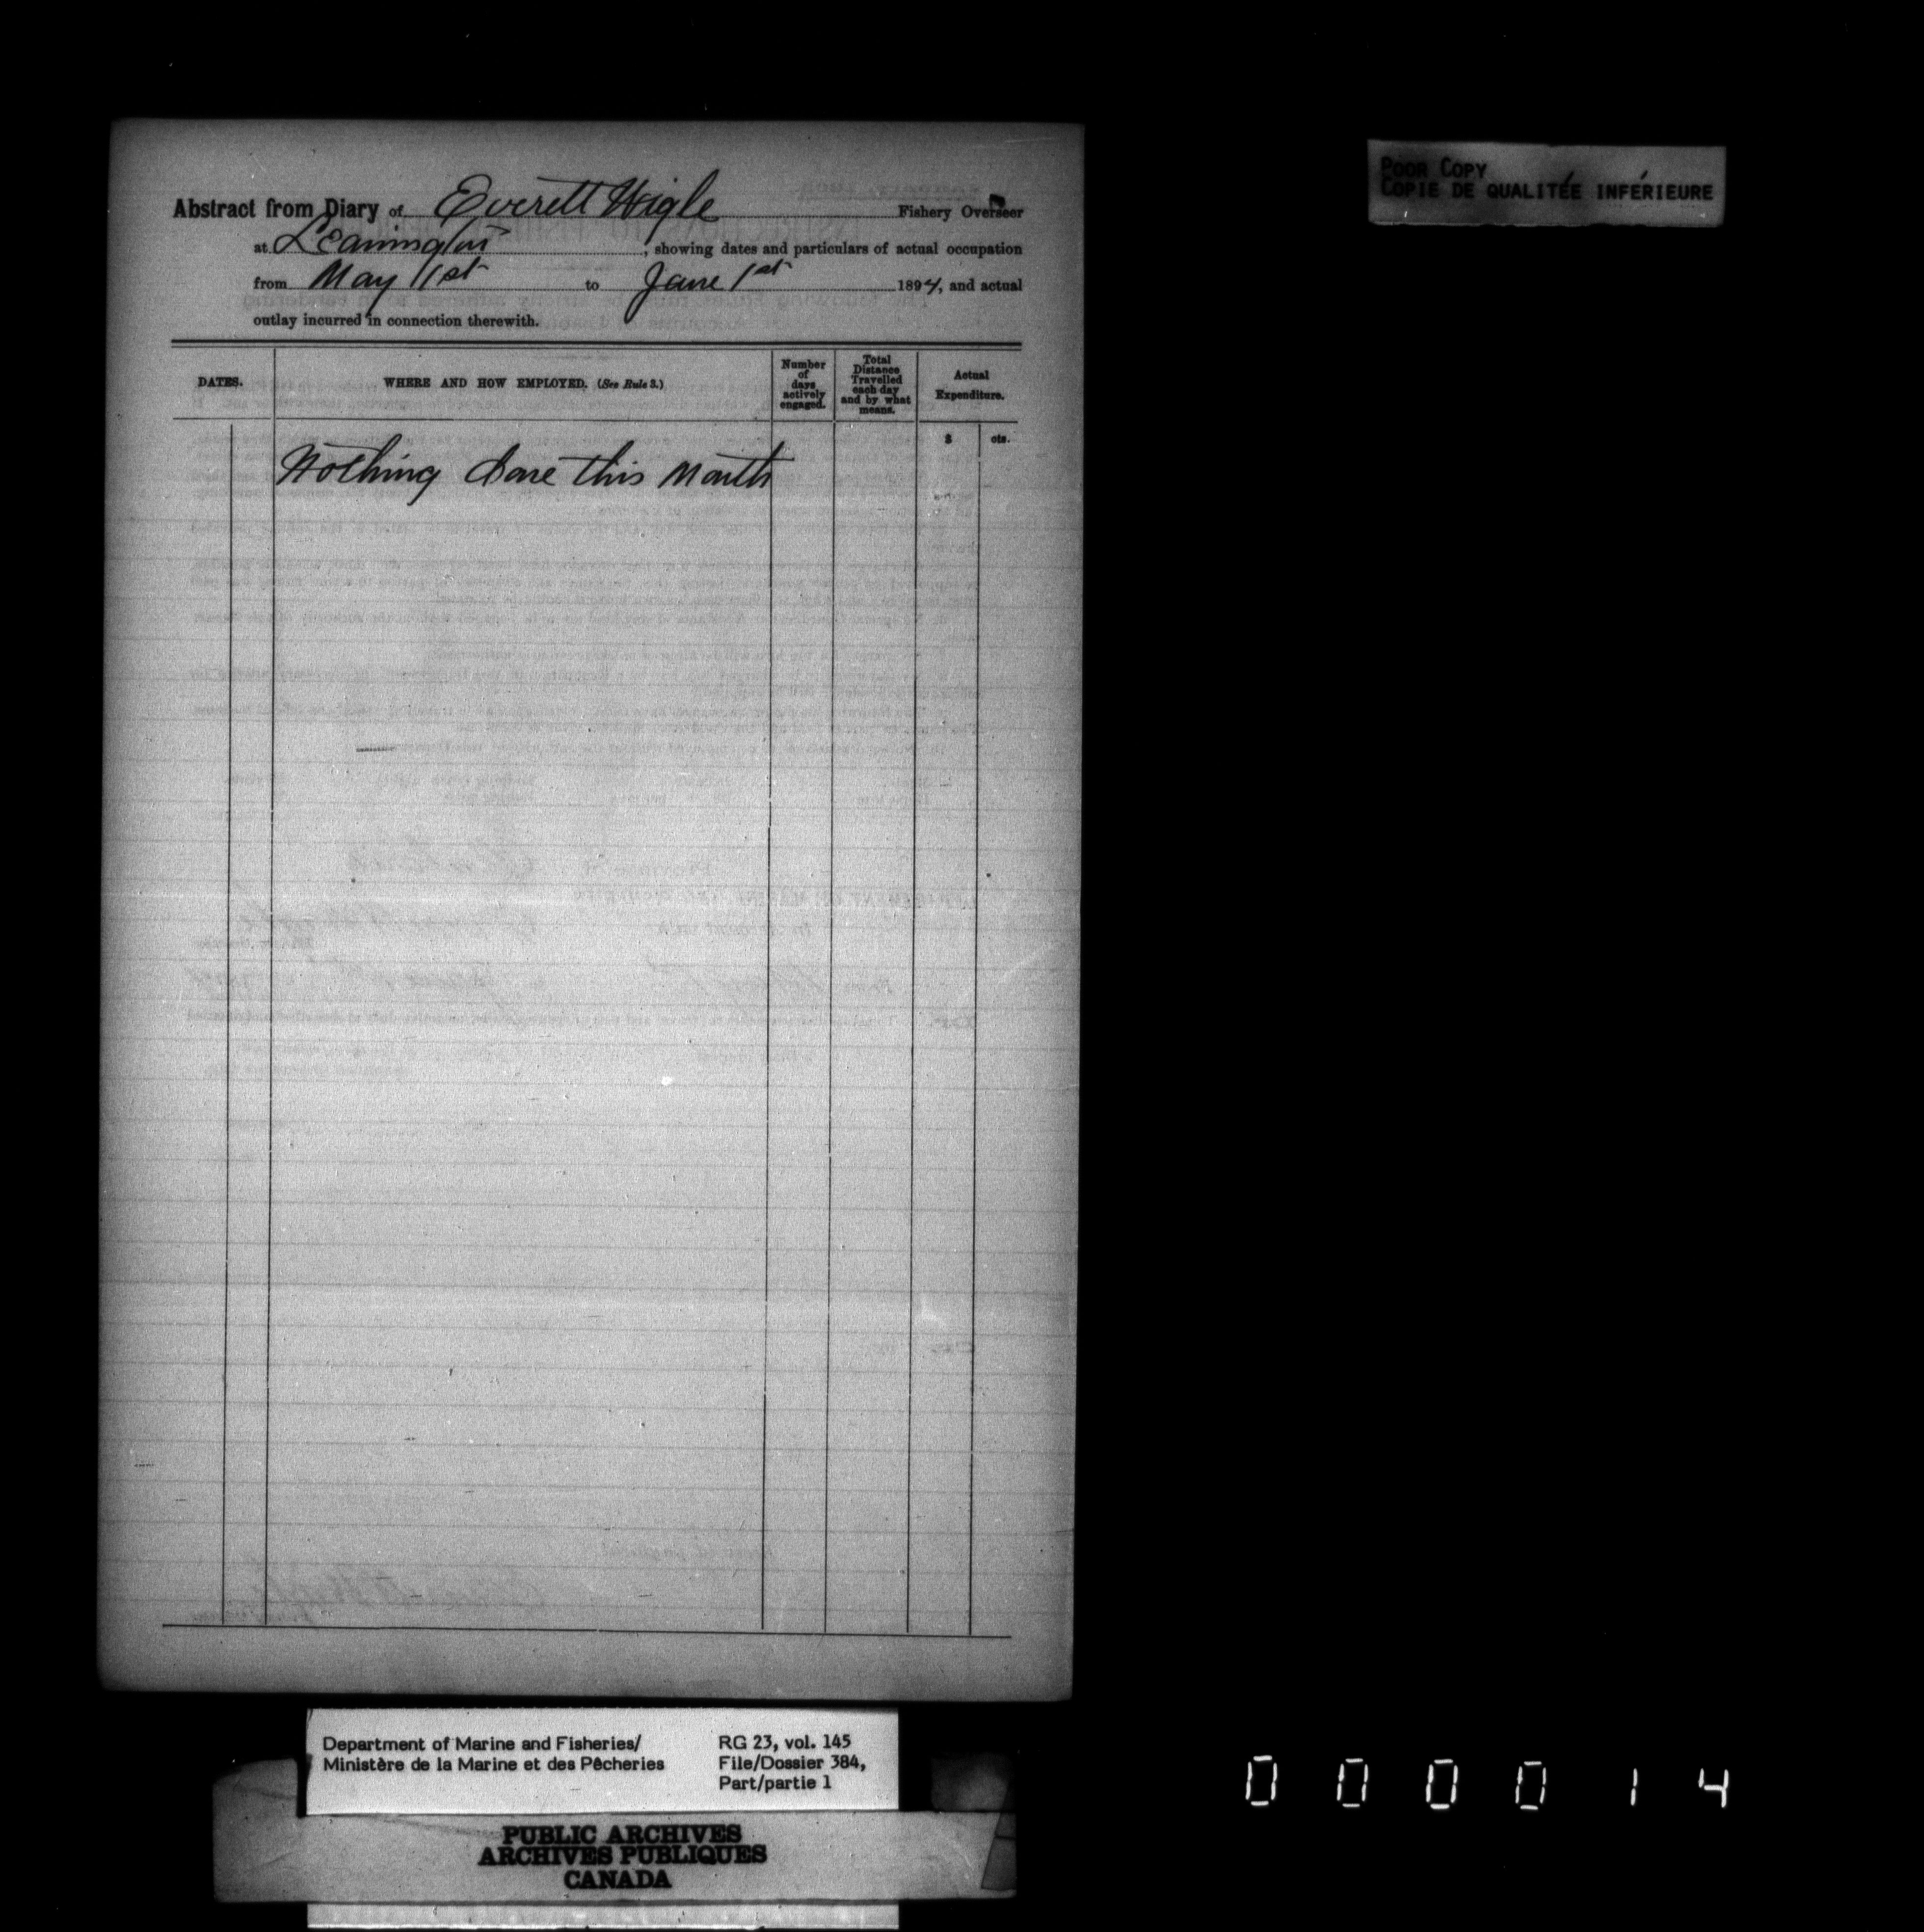 Abstract from Diary of Everett Wigle Fishery Overseer
at Leamington, showing dates and particulars of actual occupation
from May 1st to June 1st 1894, and actual
outlay incurred in connection therewith.
DATES.
WHERE AND HOW EMPLOYED. (See Rule 3.)
Number
of
days
actively
engaged.
Total
Distance
Travelled
each day
and by what
means.
Actual
Expenditure.
$ cts.
Nothing done this Month
POOR COPY
COPIE DE QUALITÉE INFÉRIEURE
Department of Marine and Fisheries/
Ministère de la Marine et des Pêcheries
RG 23, vol. 145
File/Dossier 384,
Part/partie 1
PUBLIC ARCHIVES
ARCHIVES PUBLIQUES
CANADA
000014